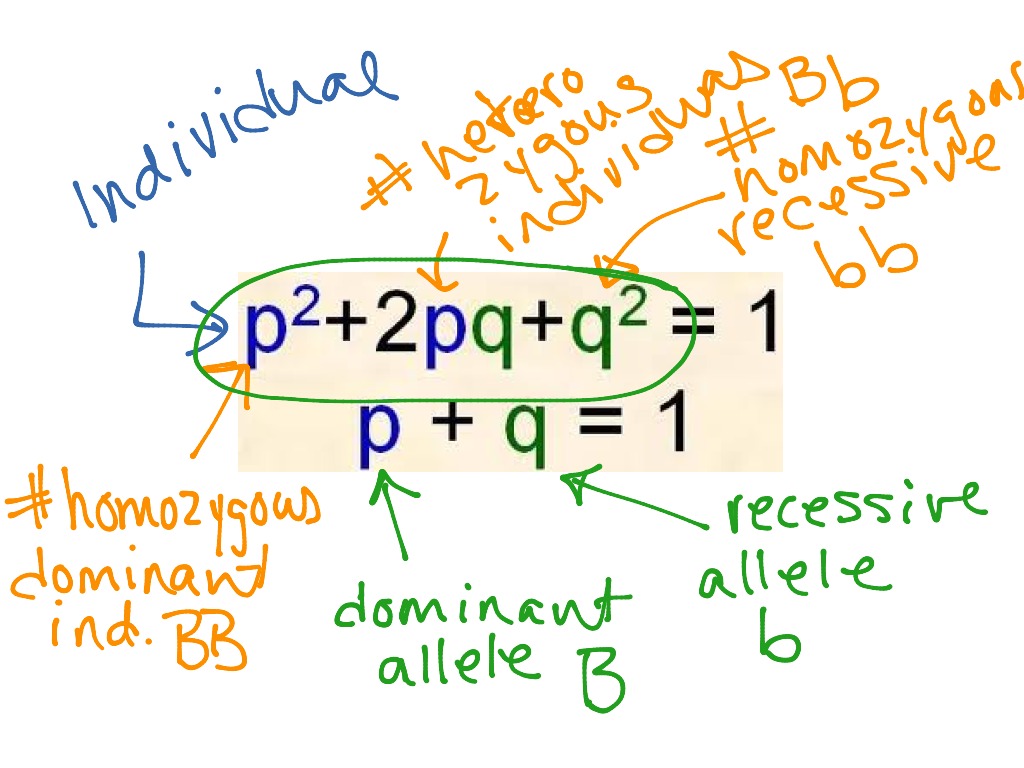 Individual
# hetero
zygous
individuals Bb
#
homozygous
recessive
bb
p²+2pq+q² = 1
p + q = 1
# homozygous
dominant
ind. BB
dominant
allele B
recessive
allele
b